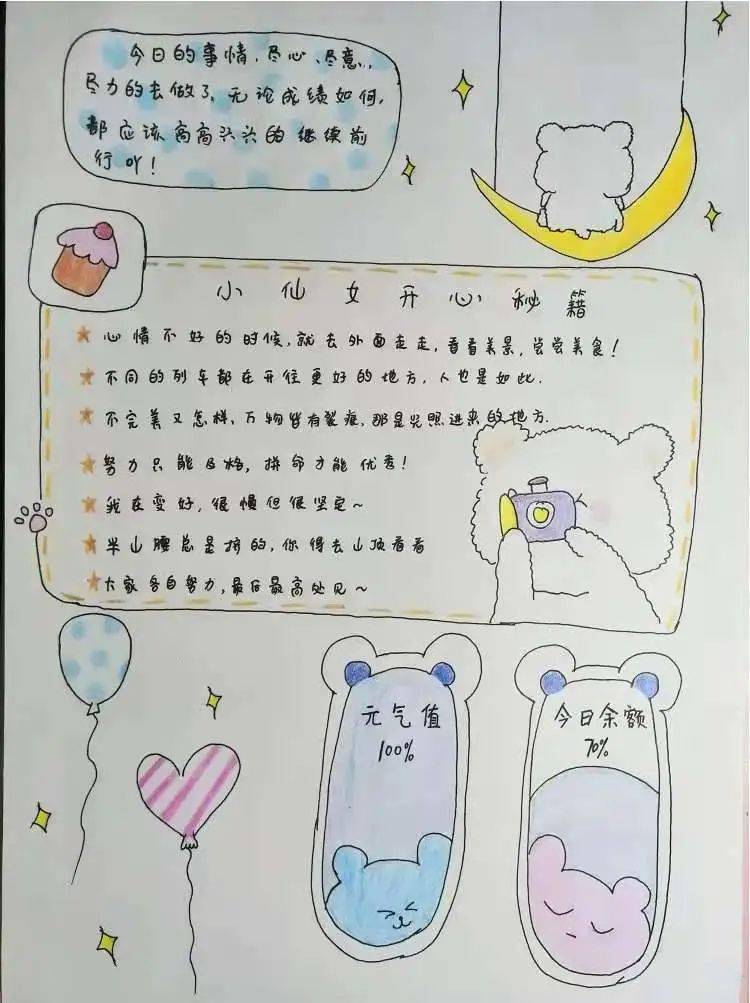 今日的事情,尽心、尽意、
尽力的去做了,无论成绩如何,
都应该高高兴兴的继续前
行吖!
小仙女开心秘籍
心情不好的时候,就去外面走走,看看美景,尝尝美食!
不同的列车都在开往更好的地方,人也是如此.
不完美又怎样,万物皆有裂痕,那是光照进来的地方.
努力只能及格,拼命才能优秀!
我在变好,很慢但很坚定~
半山腰总是挤的,你得去山顶看看
大家各自努力,最后最高处见~
元气值
100%
今日余额
70%